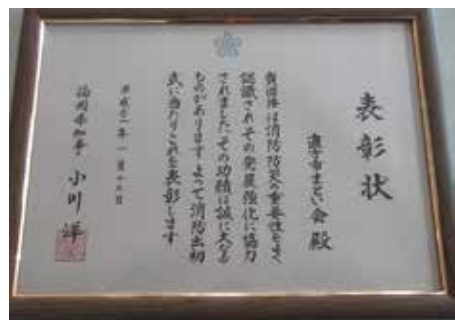 表彰状
直方市まとい会 殿
貴団体は消防防災の重要性をよく
認識されその発展強化に協力
されましたその功績は誠に大なる
ものがありますよって消防出初
式に当たりこれを表彰します
平成 年 一月 日
福岡県知事 小川 洋